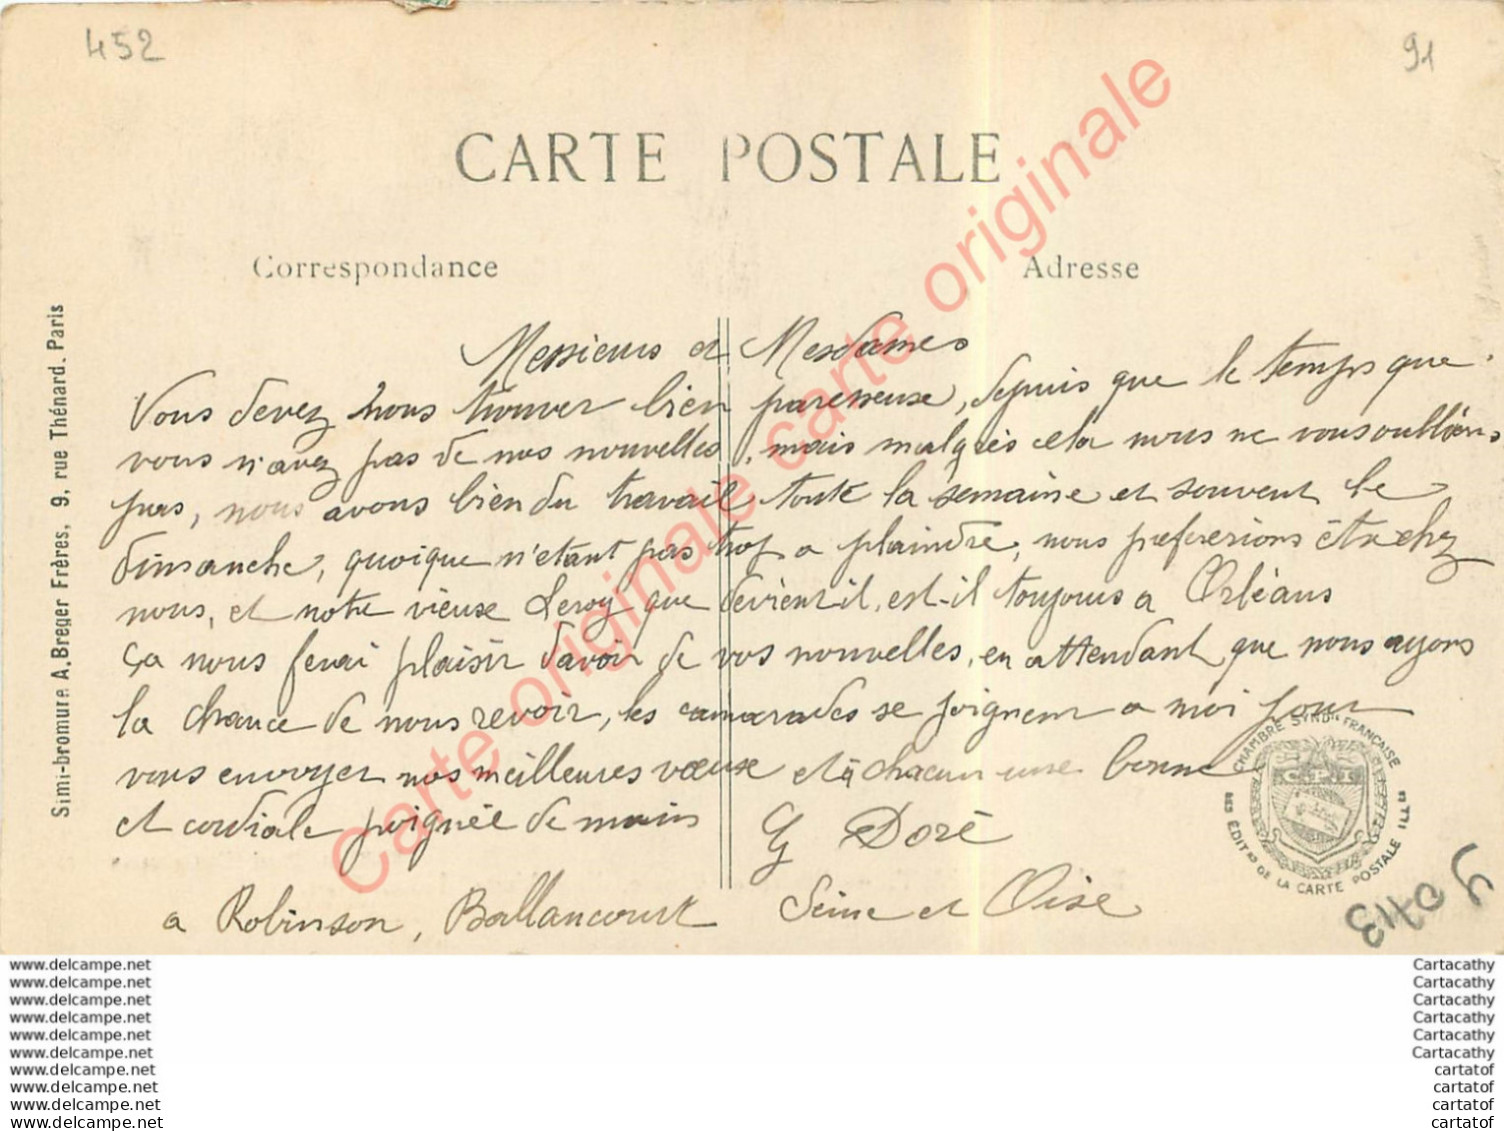 452
91
CARTE POSTALE
Correspondance
Adresse
Messieurs et Mesdames
Vous devez nous trouver bien paresseuse, depuis que le temps que
vous n'avez pas de nos nouvelles, mais malgrès cela nous ne vous oublions
pas, nous avons bien du travail toute la semaine et souvent le
dimanche, quoique n'étant pas trop a plaindre, nous preferesions être chez
nous, et notre vieuse Leroy que devient-il, est-il toujours a Orléans
ça nous ferai plaisir davoir de vos nouvelles, en attendant que nous ayons
la chance de nous revoir, les camarades se joignent a moi pour
vous envoyer nos meilleures vœuse et à chacun une bonne
et cordiale poignée de mains
G Doré
a Robinson, Ballancourt Seine et Oise
Simi-bromure A. Breger Frères, 9, rue Thénard. Paris
CHAMBRE SYND^le FRANÇAISE
DES ÉDIT^rs DE LA CARTE POSTALE ILL^ée
C.P.I
Carte originale carte originale
www.delcampe.net
www.delcampe.net
www.delcampe.net
www.delcampe.net
www.delcampe.net
www.delcampe.net
www.delcampe.net
www.delcampe.net
www.delcampe.net
www.delcampe.net
Cartacathy
Cartacathy
Cartacathy
Cartacathy
Cartacathy
Cartacathy
cartatof
cartatof
cartatof
cartatof